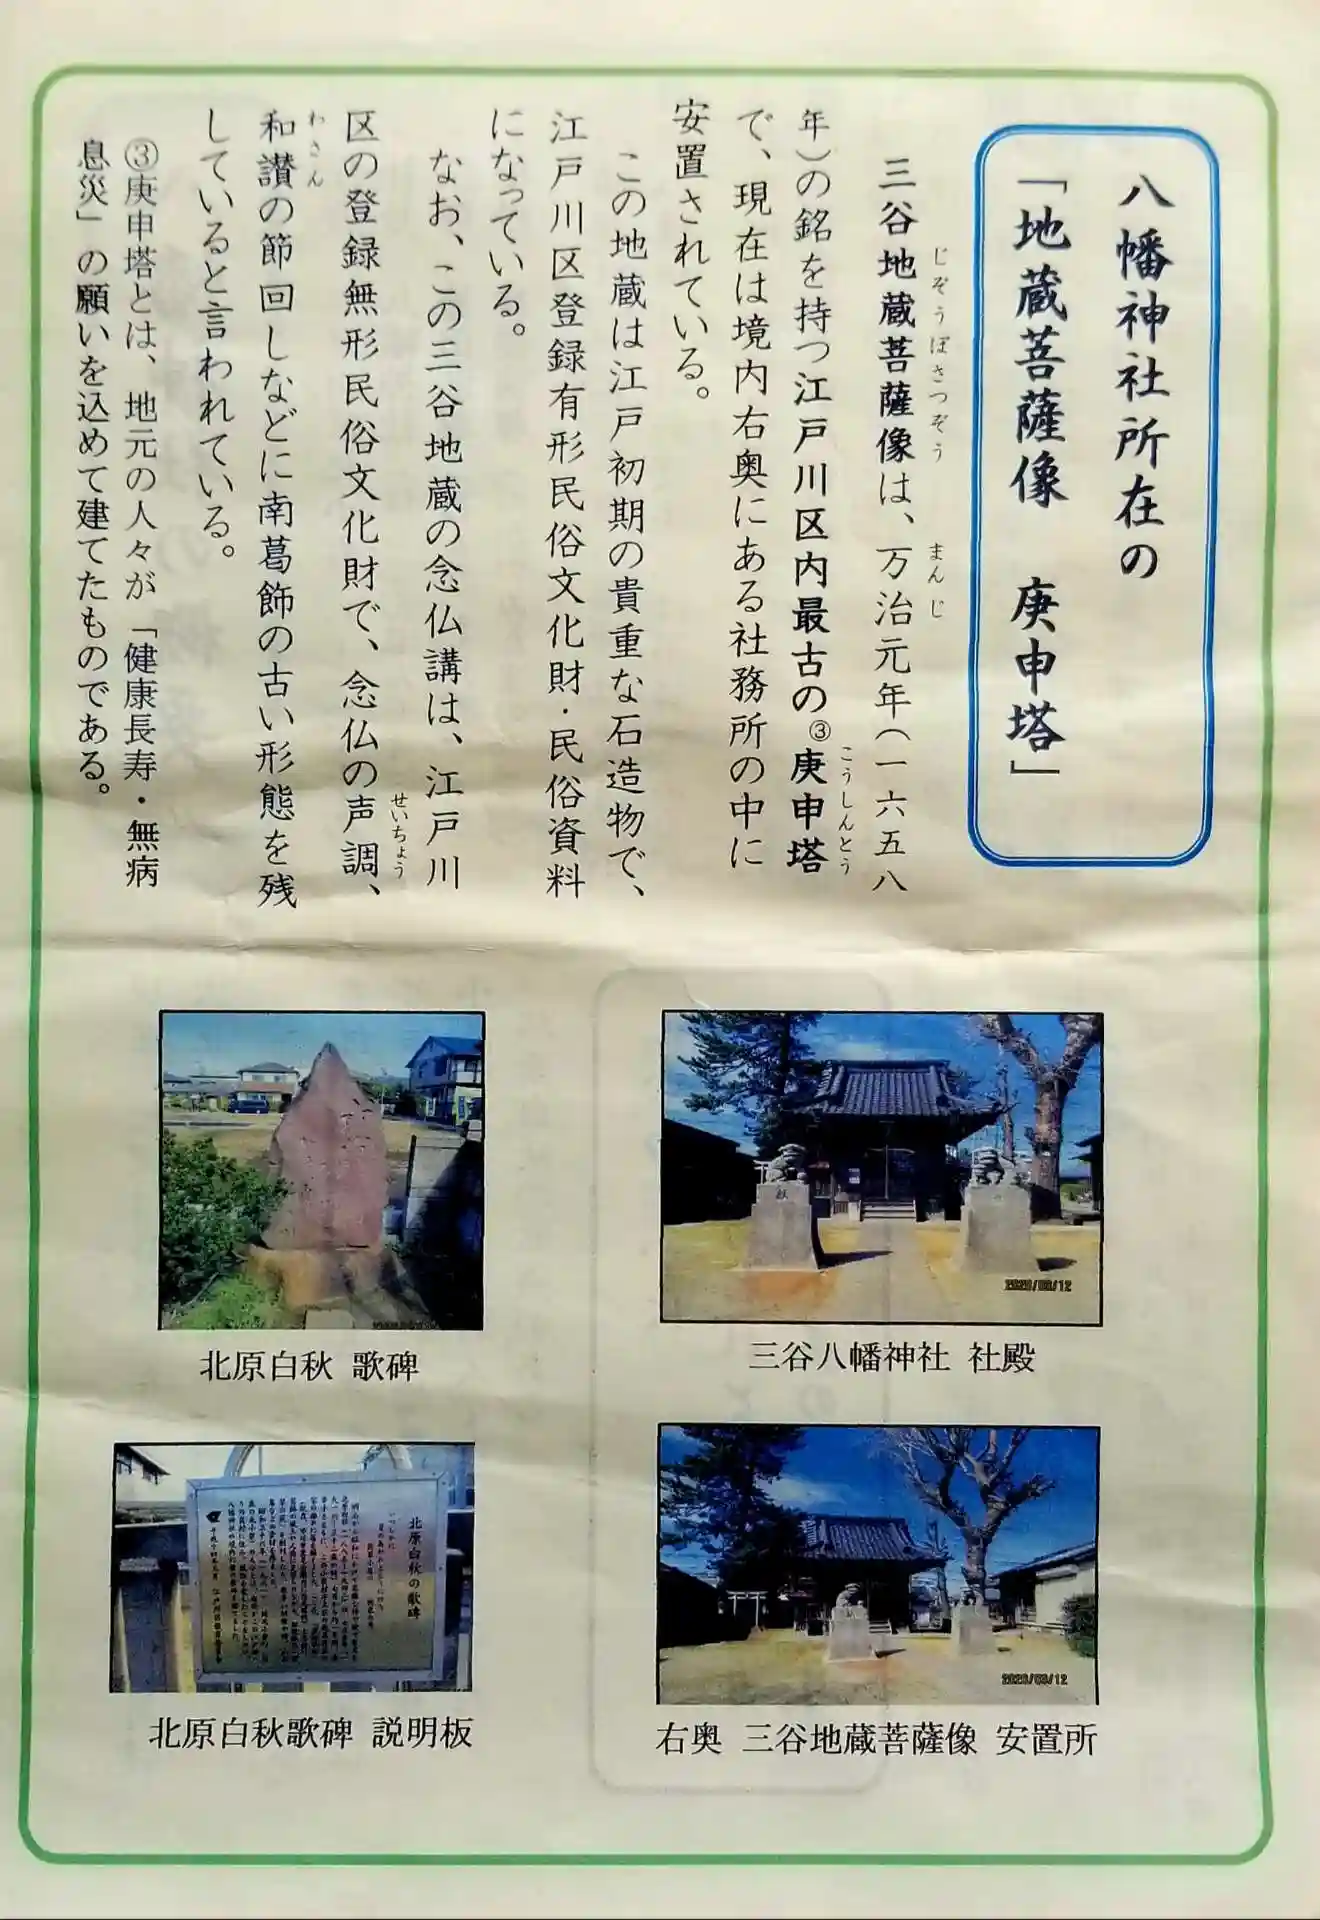 八幡神社所在の
「地蔵菩薩像 庚申塔」
三谷地蔵菩薩像は、万治元年(一六五八
じぞうぼさつぞう
まんじ
年)の銘を持つ江戸川区内最古の③庚申塔
こうしんとう
で、現在は境内右奥にある社務所の中に
安置されている。
この地蔵は江戸初期の貴重な石造物で、
江戸川区登録有形民俗文化財・民俗資料
になっている。
なお、この三谷地蔵の念仏講は、江戸川
区の登録無形民俗文化財で、念仏の声調、
せいちょう
和讃の節回しなどに南葛飾の古い形態を残
わさん
していると言われている。
③庚申塔とは、地元の人々が「健康長寿・無病
息災」の願いを込めて建てたものである。
2020/03/12
三谷八幡神社 社殿
北原白秋 歌碑
2020/03/12
右奥 三谷地蔵菩薩像 安置所
北原白秋の歌碑
北原白秋歌碑 説明板